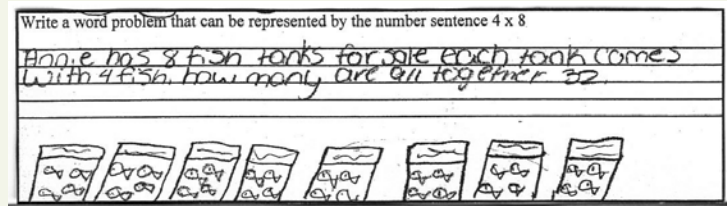 Write a word problem that can be represented by the number sentence 4 x 8
Annie has 8 fish tanks for sale each tank comes
with 4 fish. how many are all together 32